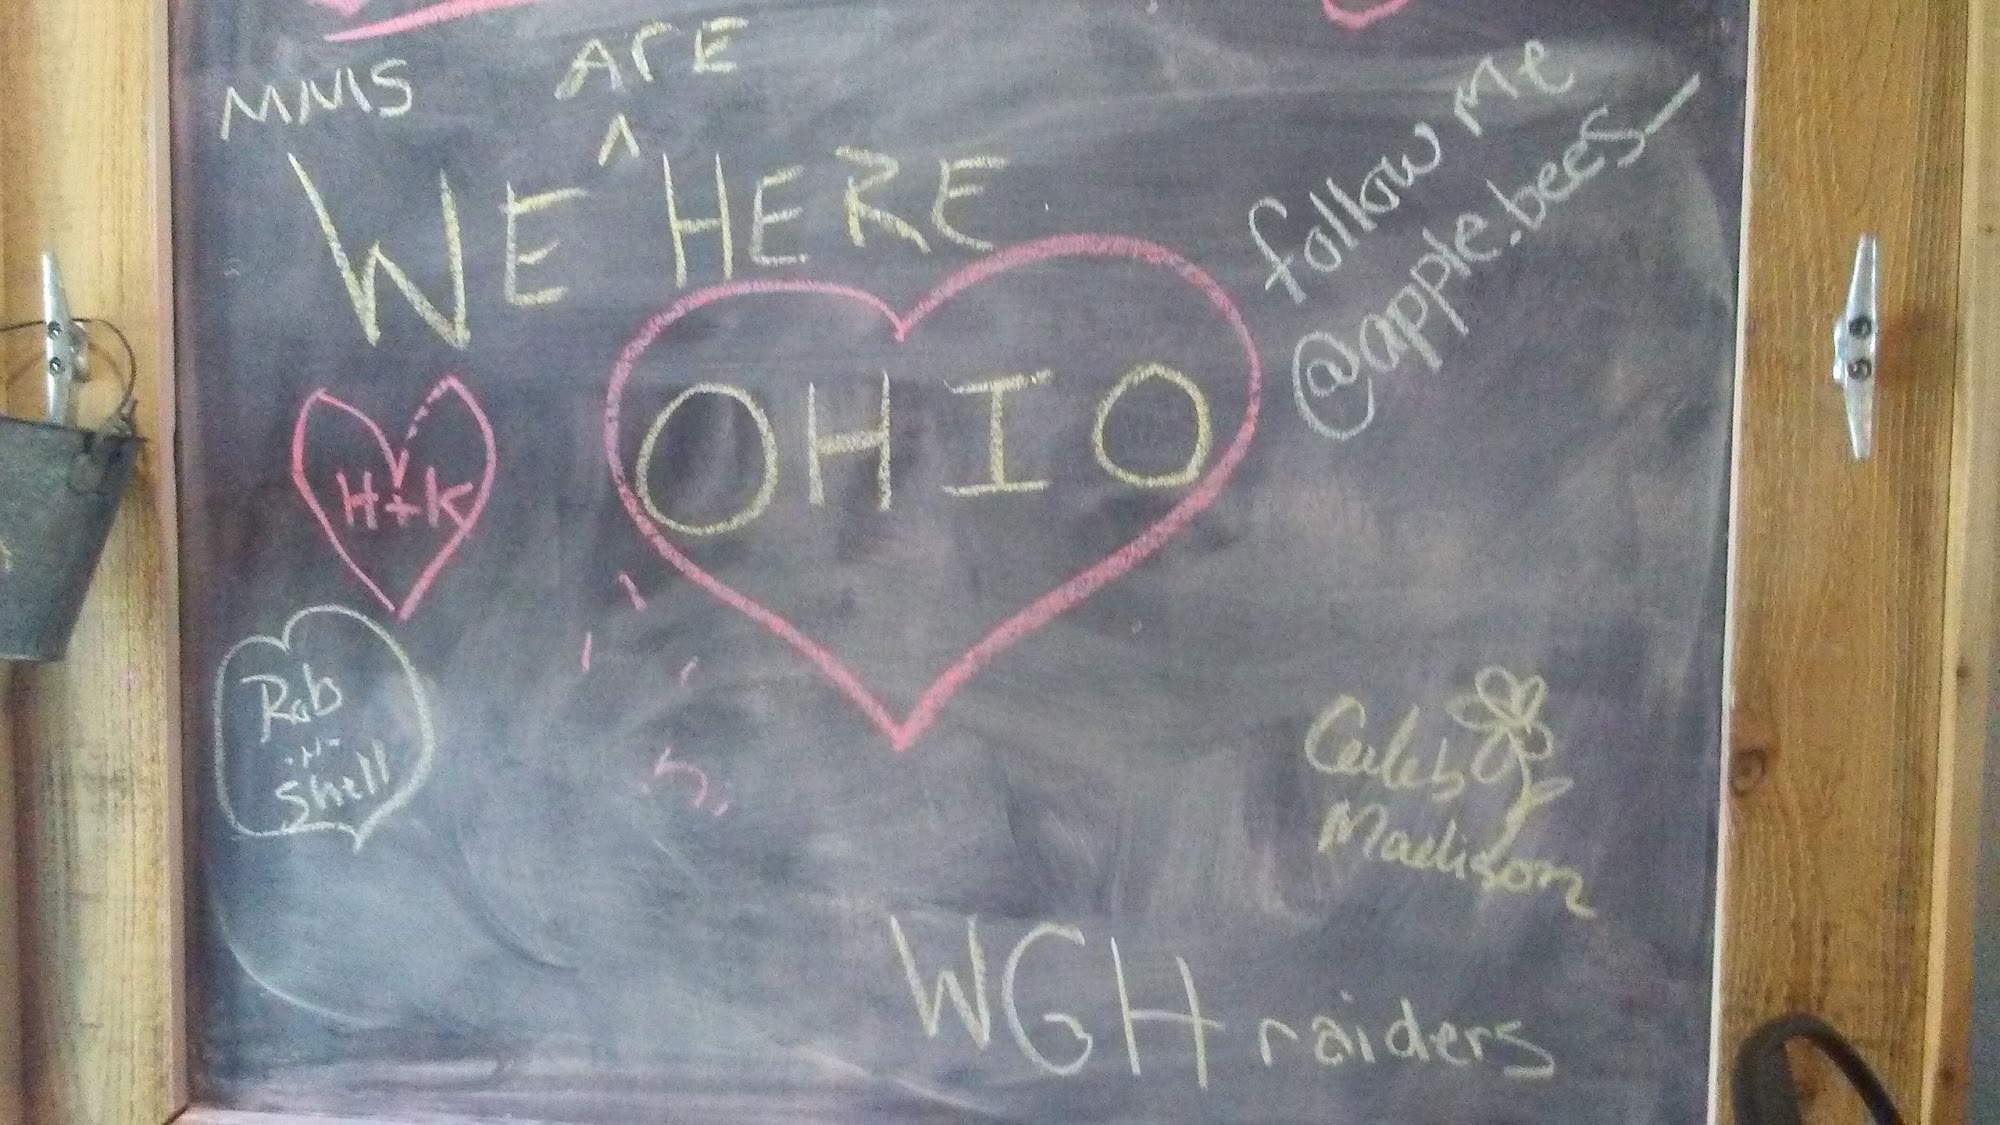 MMS
ARE
^
WE HERE
OHIO
follow me
@apple.bees_
H+K
Rob
-N-
Shell
Caleb
Madison
WGH raiders